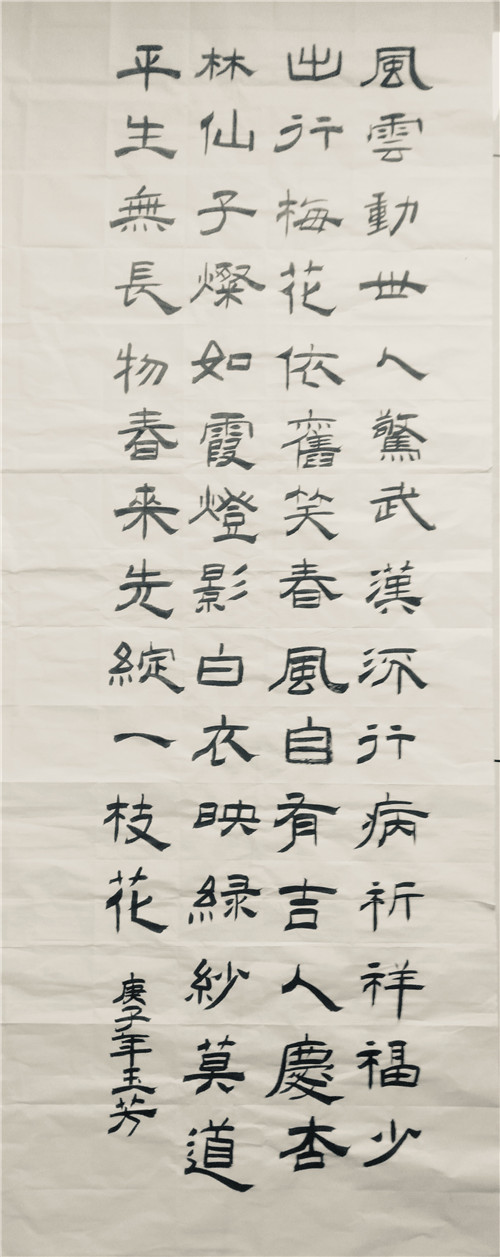 風雲動世人驚武漢流行病祈祥福少
出行梅花依舊笑春風自有吉人慶杏
林仙子燦如霞燈影白衣映緑紗莫道
平生無長物春來先綻一枝花
庚子年玉芳